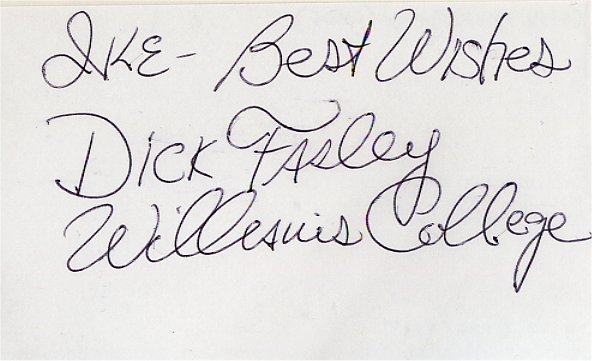 IKE - Best Wishes
Dick Farley
Williams College